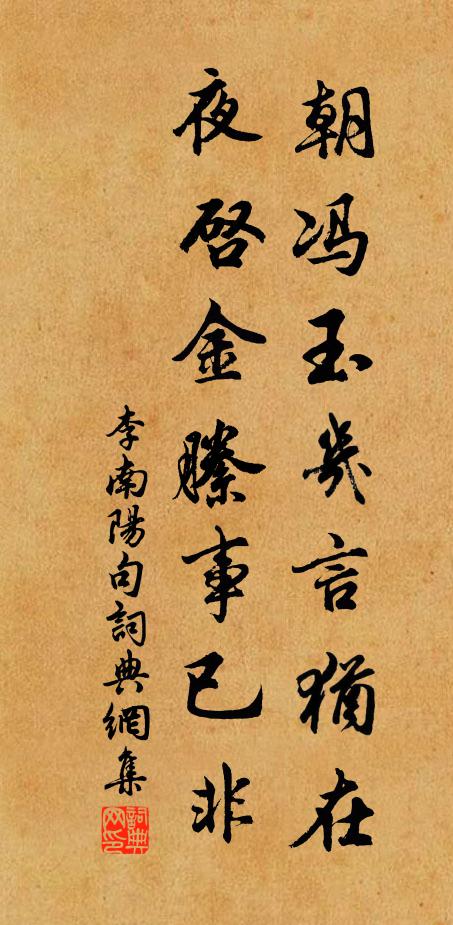 朝冯玉几言犹在
夜启金縢事已非
李南陽句詞典網集
詞典网印